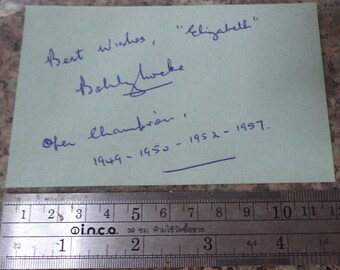 Best Wishes, "Elizabeth"
Bobby Locke
Open Champion,
1949 - 1950 - 1952 - 1957.
1 2 3 4 5 6 7 8 9 10 11
inco. 30 ซม. ห้ามใช้วัดซื้อขาย
1 2 3 64 4